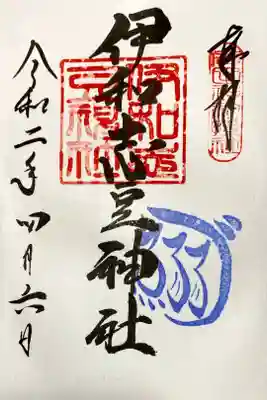 奉拝
伊和志豆神社
伊和志
豆神社
鰯づ
令和二年四月六日